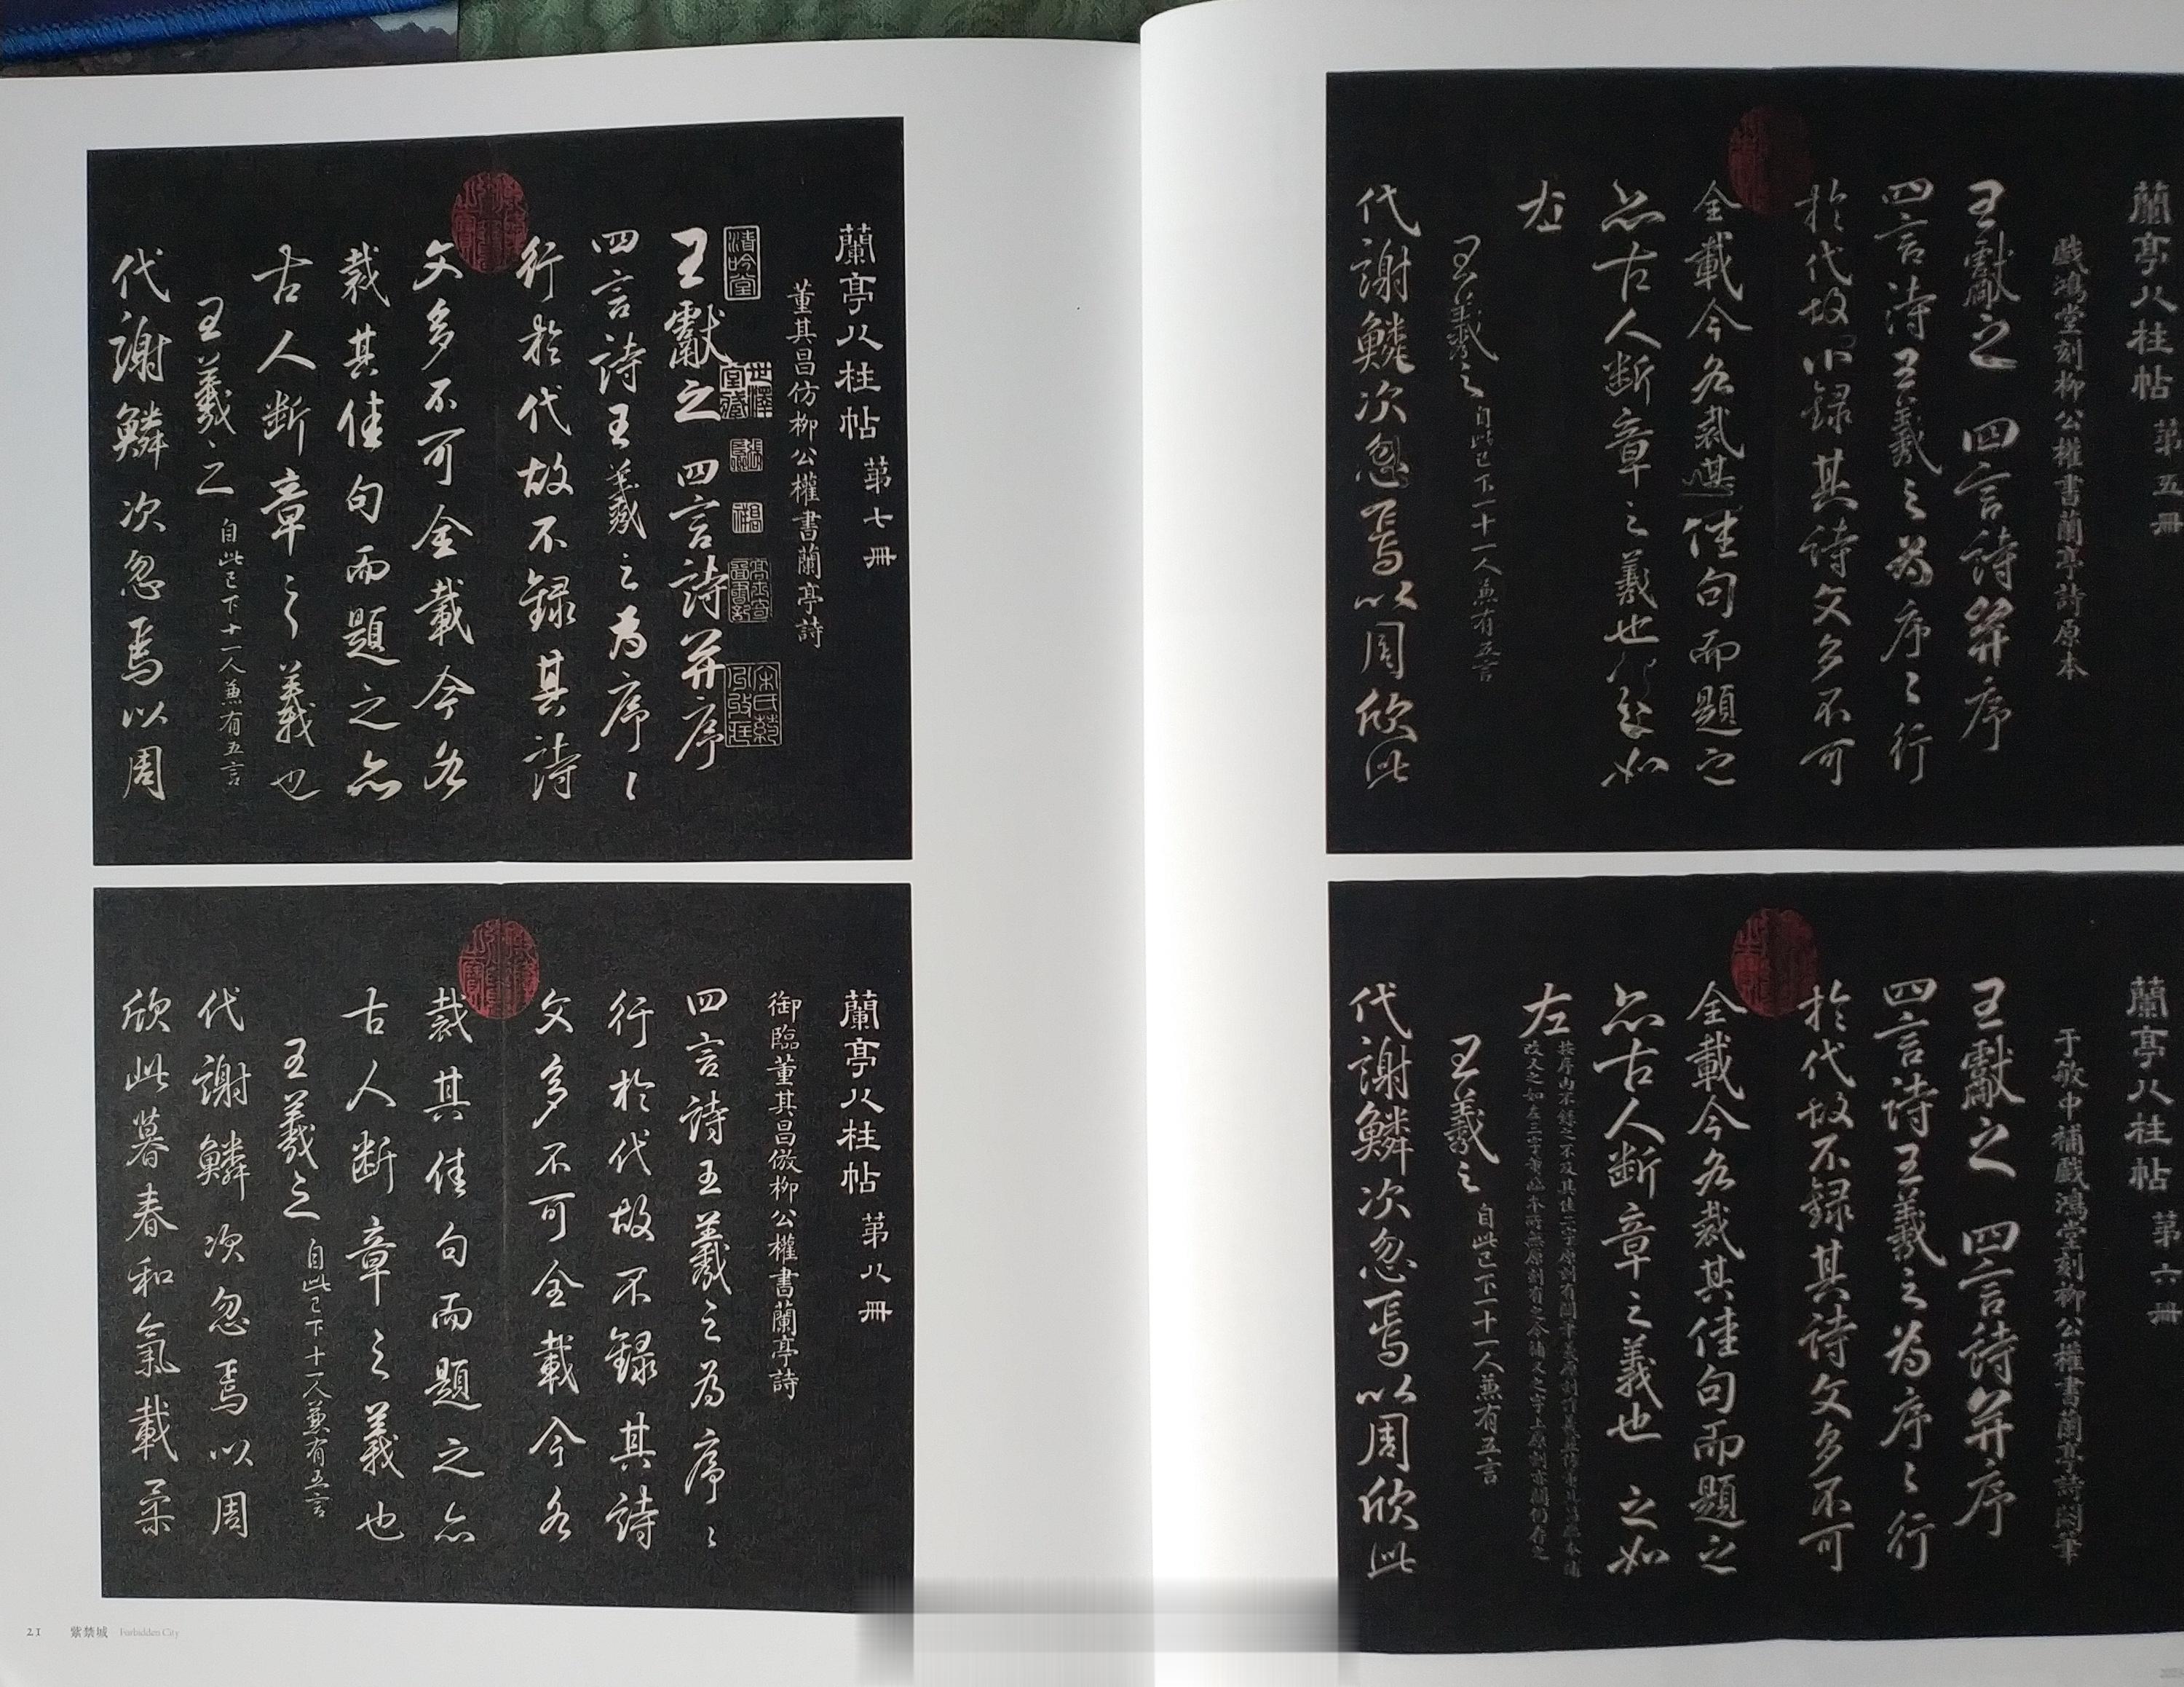 蘭亭八柱帖 第七冊
董其昌仿柳公權書蘭亭詩
清吟堂
王獻之 四言詩并序
四言詩王羲之為序〻
行於代故不錄其詩
文多不可全載今各
裁其佳句而題之亦
古人斷章之義也
王羲之 自此已下十一人兼有五言
代謝鱗次忽焉以周
蘭亭八柱帖 第八冊
御臨董其昌倣柳公權書蘭亭詩
四言詩王羲之為序〻
行於代故不錄其詩
文多不可全載今各
裁其佳句而題之亦
古人斷章之義也
王羲之 自此已下十一人兼有五言
代謝鱗次忽焉以周
欣此暮春和氣載柔
21 紫禁城 Forbidden City
蘭亭八柱帖 第五冊
戲鴻堂刻柳公權書蘭亭詩原本
王獻之 四言詩并序
四言詩王羲之為序〻行
於代故 錄其詩文多不可
全載今各裁其佳句而題之
亦古人斷章之義也 如
左
王羲之 自此已下一十一人兼有五言
代謝鱗次忽焉以周欣此
蘭亭八柱帖 第六冊
于敏中補戲鴻堂刻柳公權書蘭亭詩闕筆
王獻之 四言詩并序
四言詩王羲之為序〻行
於代故不錄其詩文多不可
全載今各裁其佳句而題之
亦古人斷章之義也 之如
左
王羲之 自此已下一十一人兼有五言
代謝鱗次忽焉以周欣此